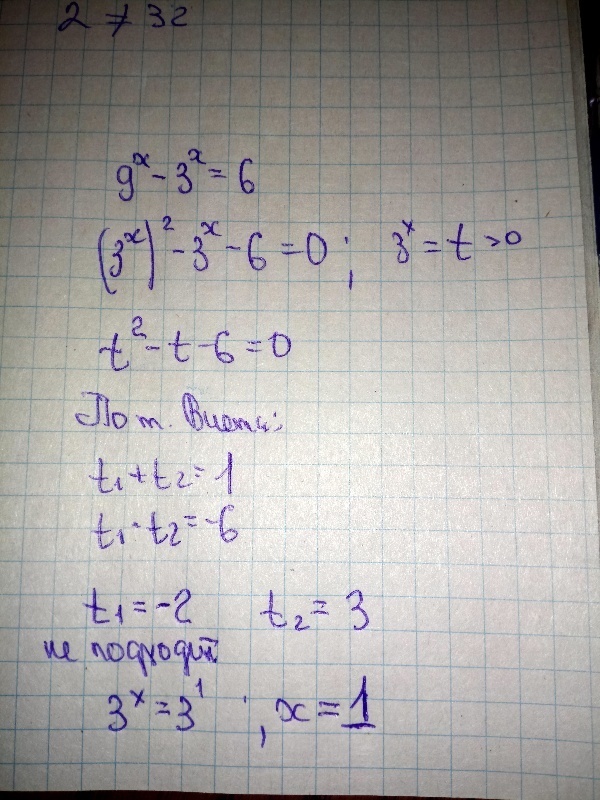 2 ≠ 32
9ˣ - 3ˣ = 6
(3ˣ)² - 3ˣ - 6 = 0 ; 3ˣ = t > 0
t² - t - 6 = 0
По т. Виета:
t₁ + t₂ = 1
t₁ · t₂ = -6
t₁ = -2 t₂ = 3
не подходит
3ˣ = 3¹ ; x = 1